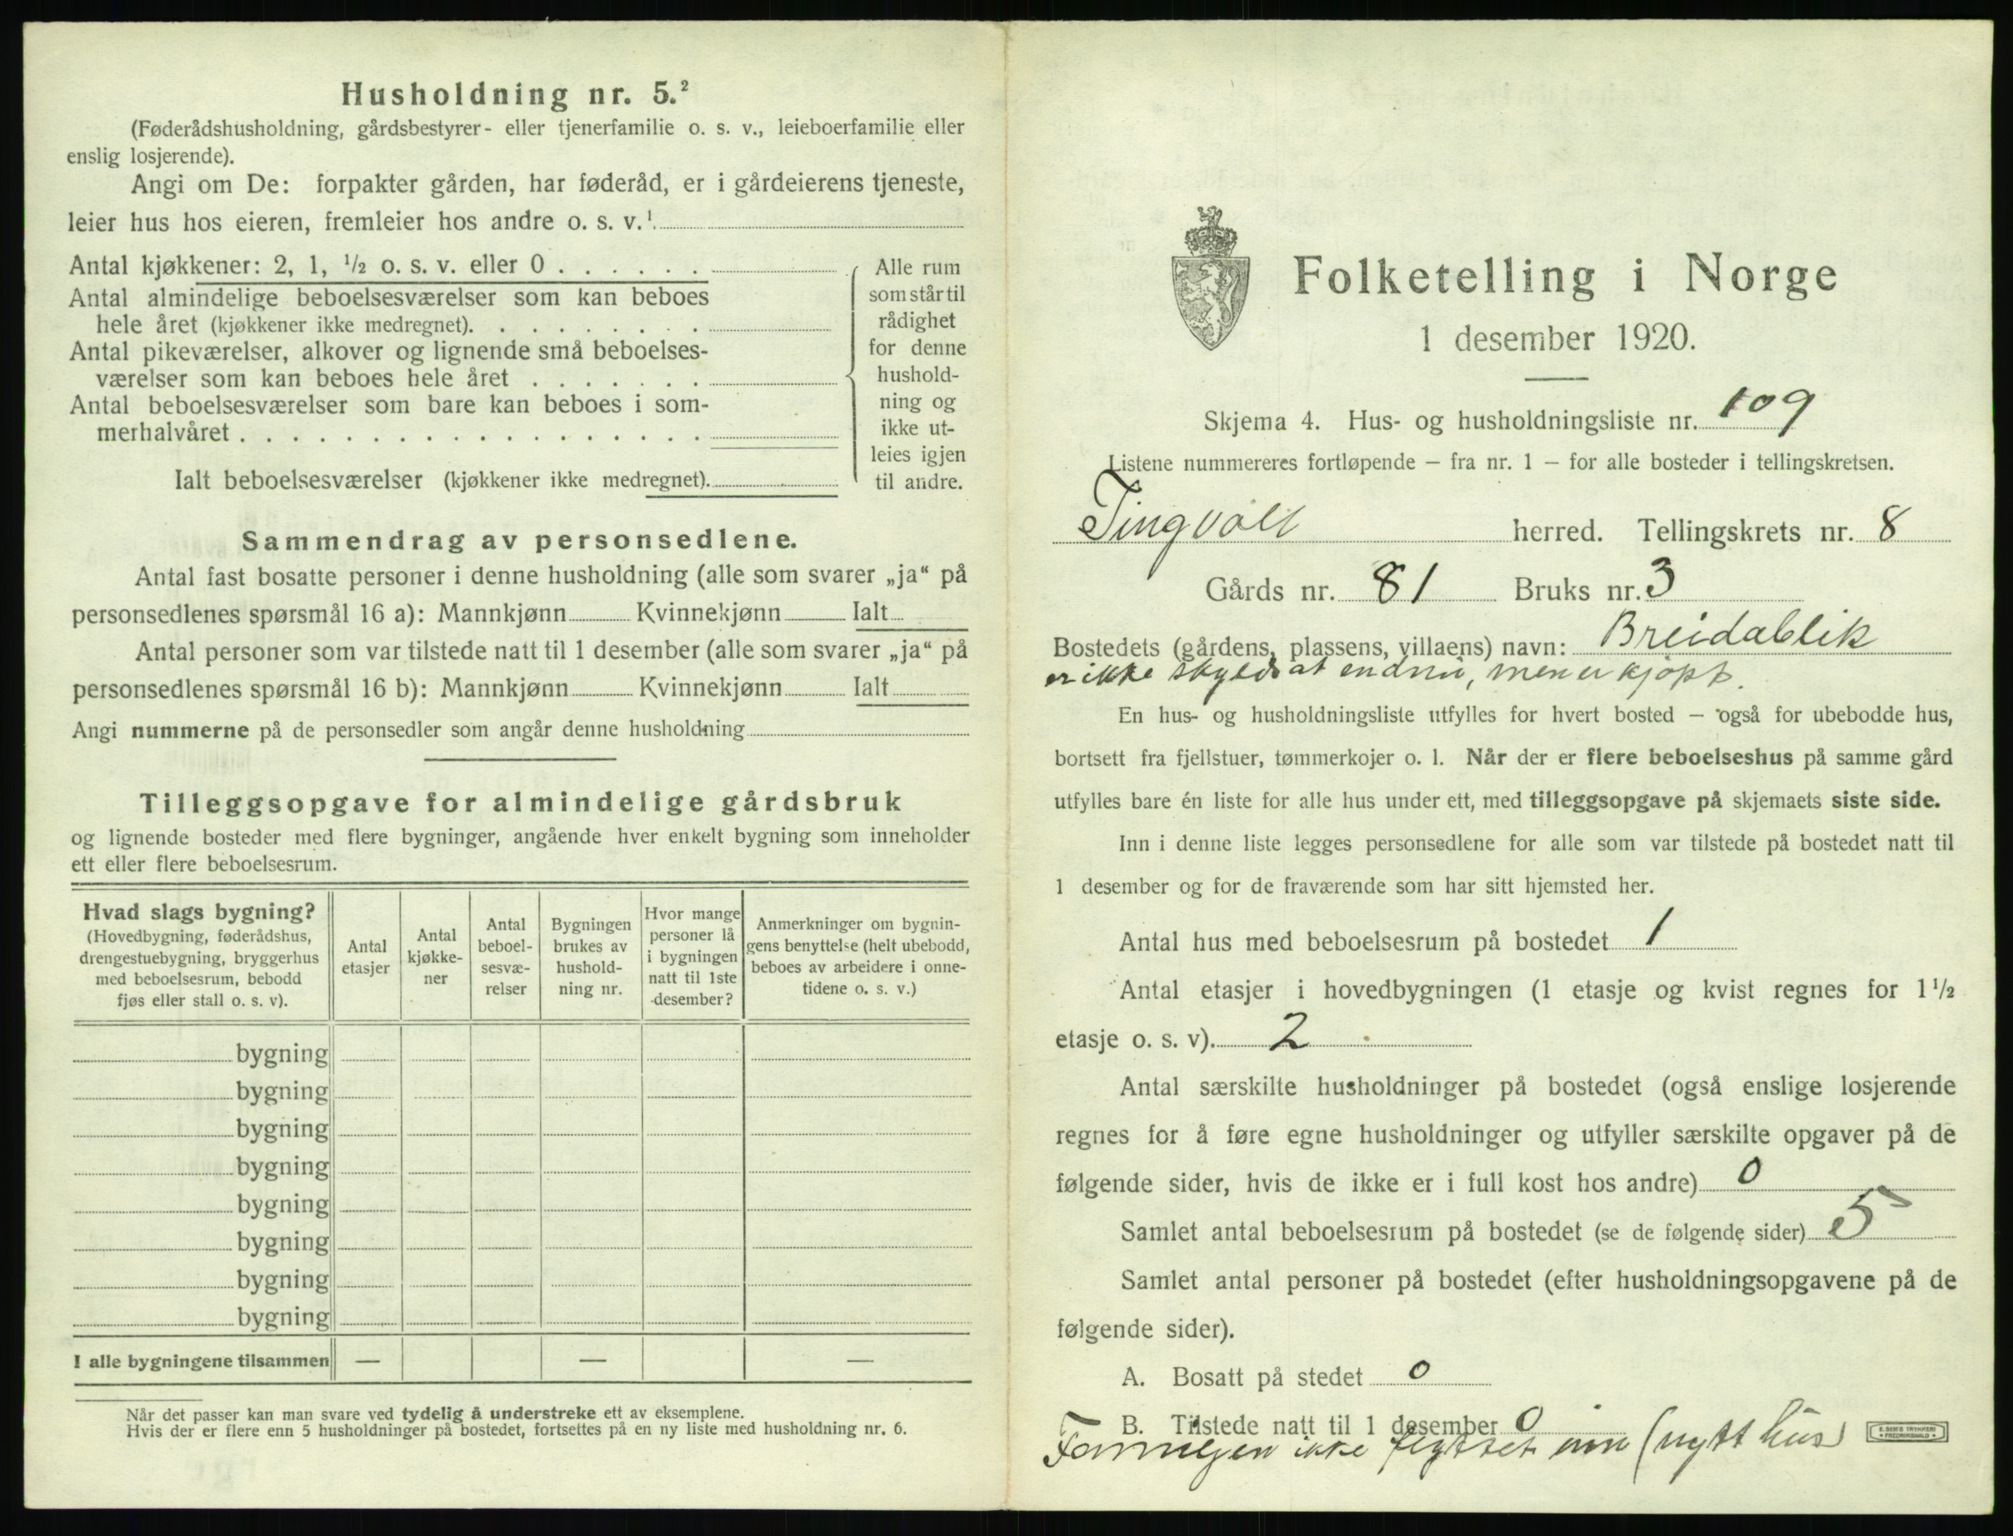 Husholdning nr. 5.²
(Føderådshusholdning, gårdsbestyrer- eller tjenerfamilie o. s. v., leieboerfamilie eller
enslig losjerende).
Angi om De: forpakter gården, har føderåd, er i gårdeierens tjeneste,
leier hus hos eieren, fremleier hos andre o. s. v.¹
Antal kjøkkener: 2, 1, ½ o. s. v. eller 0 . . . . . .
Antal almindelige beboelsesværelser som kan beboes
hele året (kjøkkener ikke medregnet). . . . . . . . .
Antal pikeværelser, alkover og lignende små beboelses-
værelser som kan beboes hele året . . . . . . .
Antal beboelsesværelser som bare kan beboes i som-
merhalvåret . . . . . . . . . . . . . . . . . .
Ialt beboelsesværelser (kjøkkener ikke medregnet).
Alle rum
som står til
rådighet
for denne
hushold-
ning og
ikke ut-
leies igjen
til andre.
Sammendrag av personsedlene.
Antal fast bosatte personer i denne husholdning (alle som svarer „ja“ på
personsedlenes spørsmål 16 a): Mannkjønn Kvinnekjønn Ialt
Antal personer som var tilstede natt til 1 desember (alle som svarer „ja“ på
personsedlenes spørsmål 16 b): Mannkjønn Kvinnekjønn Ialt
Angi nummerne på de personsedler som angår denne husholdning
Tilleggsopgave for almindelige gårdsbruk
og lignende bosteder med flere bygninger, angående hver enkelt bygning som inneholder
ett eller flere beboelsesrum.
Hvad slags bygning?
(Hovedbygning, føderådshus,
drengestuebygning, bryggerhus
med beboelsesrum, bebodd
fjøs eller stall o. s. v).
Antal
etasjer
Antal
kjøkke-
ner
Antal
beboel-
sesvæ-
relser
Bygningen
brukes av
hushold-
ning nr.
Hvor mange
personer lå
i bygningen
natt til 1ste
desember?
Anmerkninger om bygnin-
gens benyttelse (helt ubebodd,
beboes av arbeidere i onne-
tidene o. s. v.)
bygning
bygning
bygning
bygning
bygning
bygning
bygning
bygning
I alle bygningene tilsammen — — —
Når det passer kan man svare ved tydelig å understreke ett av eksemplene.
Hvis der er flere enn 5 husholdninger på bostedet, fortsettes på en ny liste med husholdning nr. 6.
Folketelling i Norge
1 desember 1920.
Skjema 4. Hus- og husholdningsliste nr. 109
Listene nummereres fortløpende – fra nr. 1 – for alle bosteder i tellingskretsen.
Tingvoll herred. Tellingskrets nr. 8
Gårds nr. 81 Bruks nr. 3
Bostedets (gårdens, plassens, villaens) navn: Breidablik
er ikke skyldsat endnu, men er kjøpt.
En hus- og husholdningsliste utfylles for hvert bosted – også for ubebodde hus,
bortsett fra fjellstuer, tømmerkojer o. l. Når der er flere beboelseshus på samme gård
utfylles bare én liste for alle hus under ett, med tilleggsopgave på skjemaets siste side.
Inn i denne liste legges personsedlene for alle som var tilstede på bostedet natt til
1 desember og for de fraværende som har sitt hjemsted her.
Antal hus med beboelsesrum på bostedet 1
Antal etasjer i hovedbygningen (1 etasje og kvist regnes for 1½
etasje o. s. v). 2
Antal særskilte husholdninger på bostedet (også enslige losjerende
regnes for å føre egne husholdninger og utfyller særskilte opgaver på de
følgende sider, hvis de ikke er i full kost hos andre) 0
Samlet antal beboelsesrum på bostedet (se de følgende sider) 5
Samlet antal personer på bostedet (efter husholdningsopgavene på de
følgende sider).
A. Bosatt på stedet 0
B. Tilstede natt til 1 desember 0
ikke flyttet inn (nytt hus)